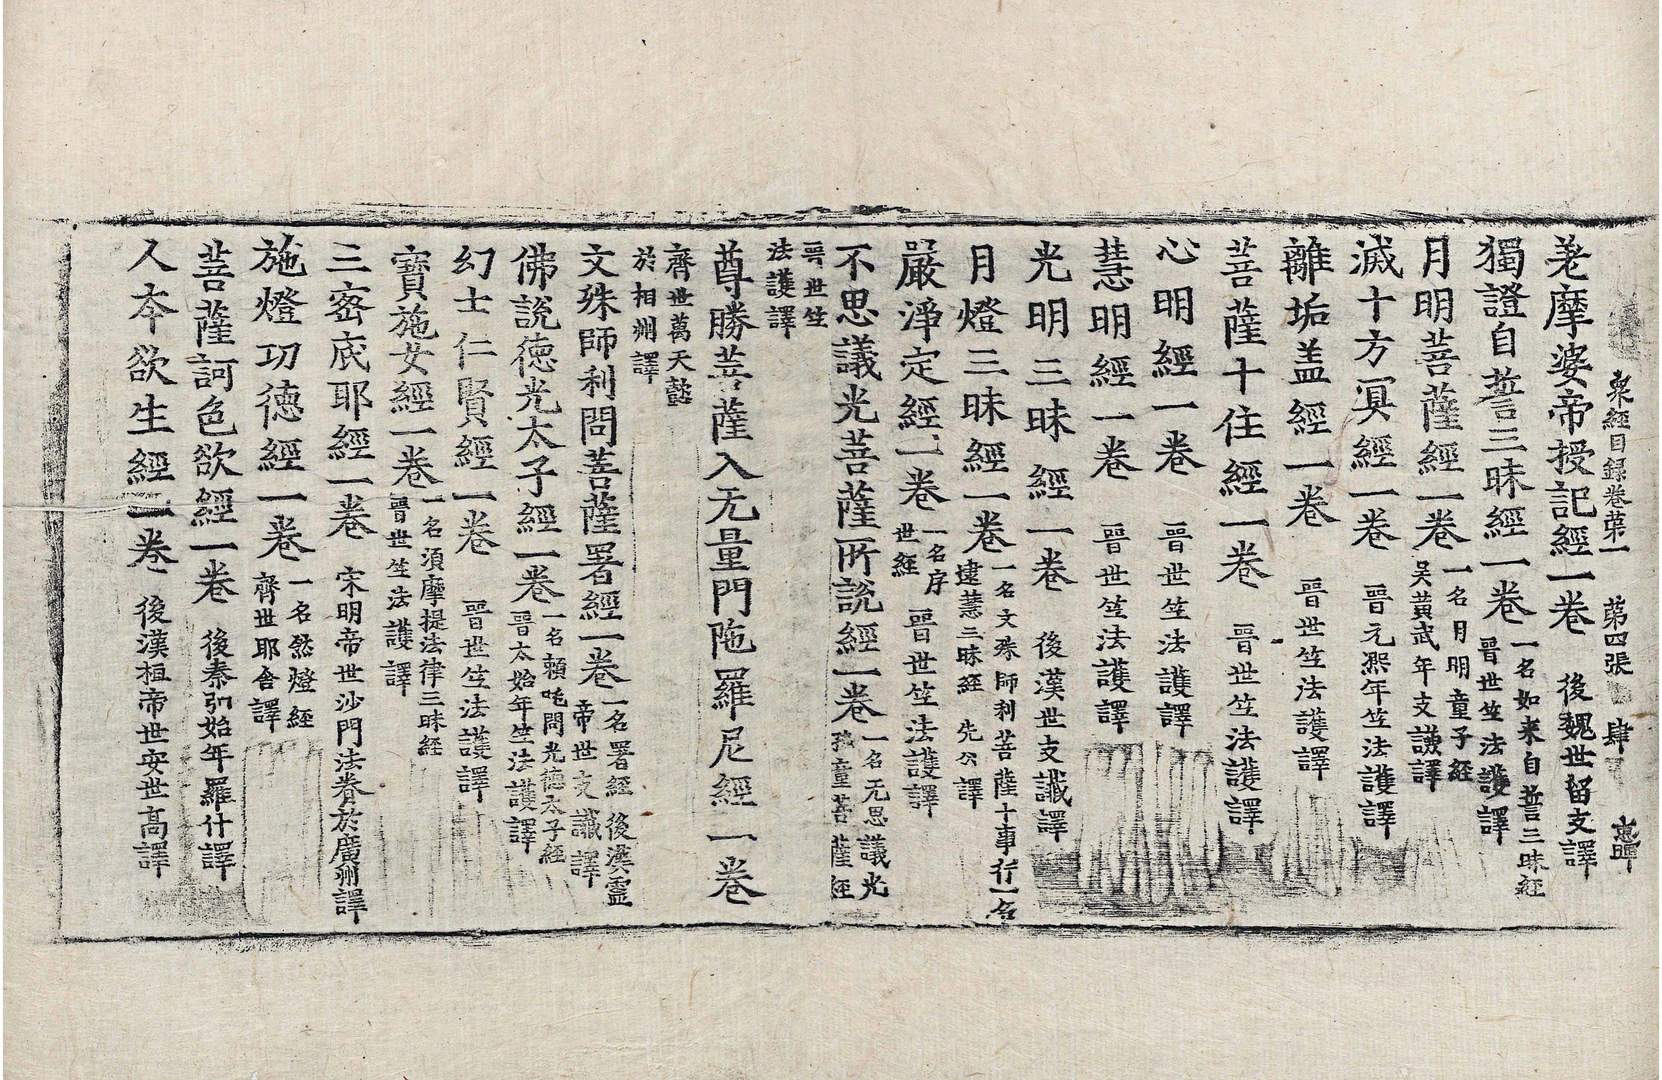 衆經目録卷苐一　苐四張　肆　忠
老摩婆帝授記經一卷　後魏世留支譯
獨證自誓三昧經一卷一名如来自誓三昧經
晋世竺法護譯
月明菩薩經一卷一名月明童子經
吴黄武年支謙譯
滅十方冥經一卷　晋元熈年竺法護譯
離垢盖經一卷　晋世竺法護譯
菩薩十住經一卷　晋世竺法護譯
心明經一卷　晋世竺法護譯
慧明經一卷　晋世竺法護譯
光明三昧經一卷　後漢世支讖譯
月燈三昧經一卷一名文殊師利菩薩十事行一名
逮慧三昧經　先公譯
嚴淨定經一卷一名序
世經　晋世竺法護譯
不思議光菩薩所說經一卷一名无思議光
孩童菩薩經
晋世竺
法護譯
尊勝菩薩入无量門陁羅尼經一卷
齊世萬天懿
於相州譯
文殊師利問菩薩署經一卷一名署經　後漢靈
帝世支讖譯
佛說徳光太子經一卷一名頼吒問光德太子經
晋太始年竺法護譯
幻士仁賢經一卷　晋世竺法護譯
寳施女經一卷一名須摩提法律三昧經
晋世竺法護譯
三密底耶經一卷　宋明帝世沙門法眷於廣州譯
施燈功徳經一卷一名然燈經
齊世耶舍譯
菩薩訶色欲經一卷　後秦弘始年羅什譯
人夲欲生經一卷　後漢桓帝世安世髙譯